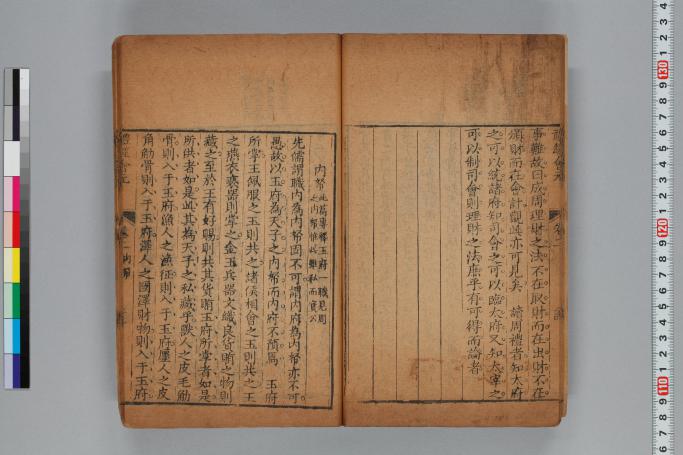 事難故曰成周理財之法不在取財而在出財不在
頒財而在會計觀此亦可見矣 讀周禮者知大府
之可以統諸府知司會之可以臨大府又知太宰之
可以制司會則理財之法庶乎有可得而論者
內帑 此篇專釋玉府一職見周之內帑惟此雖私而實公
先儒謂職內為內帑固不可謂內府為內帑亦不可
愚故以玉府為天子之內帑而內府不預焉 玉府
所掌王佩服之玉則共之諸侯相會之玉則共之王
之燕衣褻器則掌之金玉兵器文織良貨賄之物則
藏之至於王有好賜則共其貨賄玉府所掌者如是
所供者如是此其為天子之私藏乎獸人之皮毛筋
骨則入于玉府漁人之漁征則入于玉府廛人之皮
角筋骨則入于玉府澤人之國澤財物則入于玉府
內帑